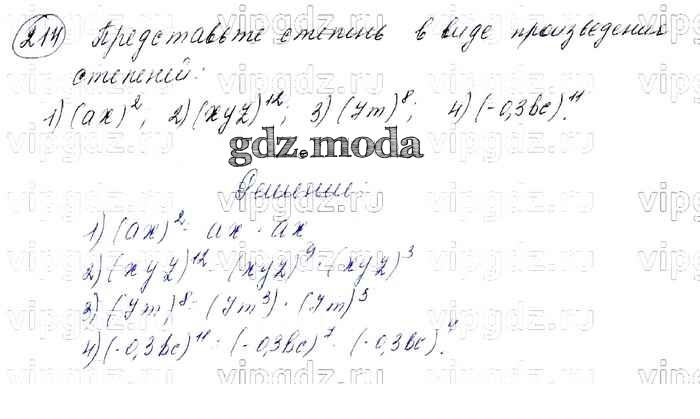 214 Представьте степень в виде произведения
степеней:
1) (ax)², 2) (xyz)¹²; 3) (7m)⁸; 4) (-0,3bc)¹¹.
gdz.moda
Решение:
1) (ax)² = ax · ax
2) (xyz)¹² = (xyz)⁹ · (xyz)³
3) (7m)⁸ = (7m³) · (7m)⁵
4) (-0,3bc)¹¹ = (-0,3bc)⁷ · (-0,3bc)⁴.
vipgdz.ru